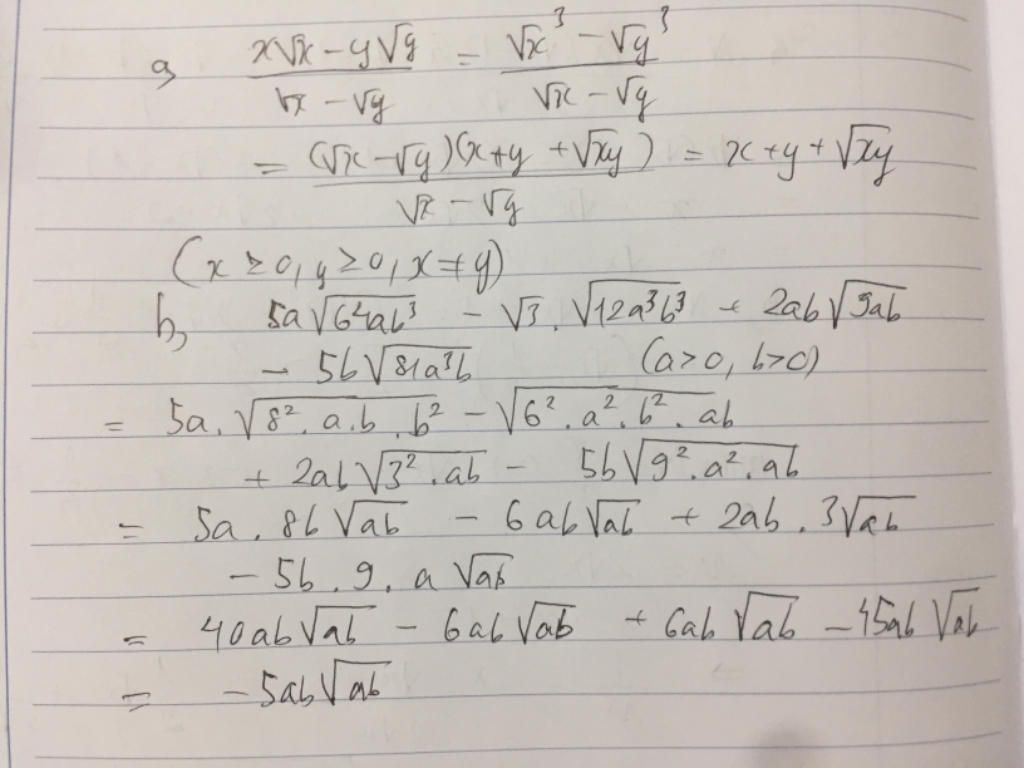 a, (x√x - y√y)/(√x - √y) = (√x³ - √y³)/(√x - √y)
= ((√x - √y)(x + y + √xy))/(√x - √y) = x + y + √xy
(x ≥ 0, y ≥ 0, x ≠ y)
b, 5a√(64ab³) - √3 . √(12a³b³) + 2ab√(9ab)
- 5b√(81a³b) (a>0, b>0)
= 5a . √(8² . a.b . b²) - √(6² . a² . b² . ab)
+ 2ab√(3² . ab) - 5b√(9² . a² . ab)
= 5a . 8b√(ab) - 6ab√(ab) + 2ab . 3√(ab)
- 5b . 9 . a√(ab)
= 40ab√(ab) - 6ab√(ab) + 6ab√(ab) - 45ab√(ab)
= - 5ab√(ab)